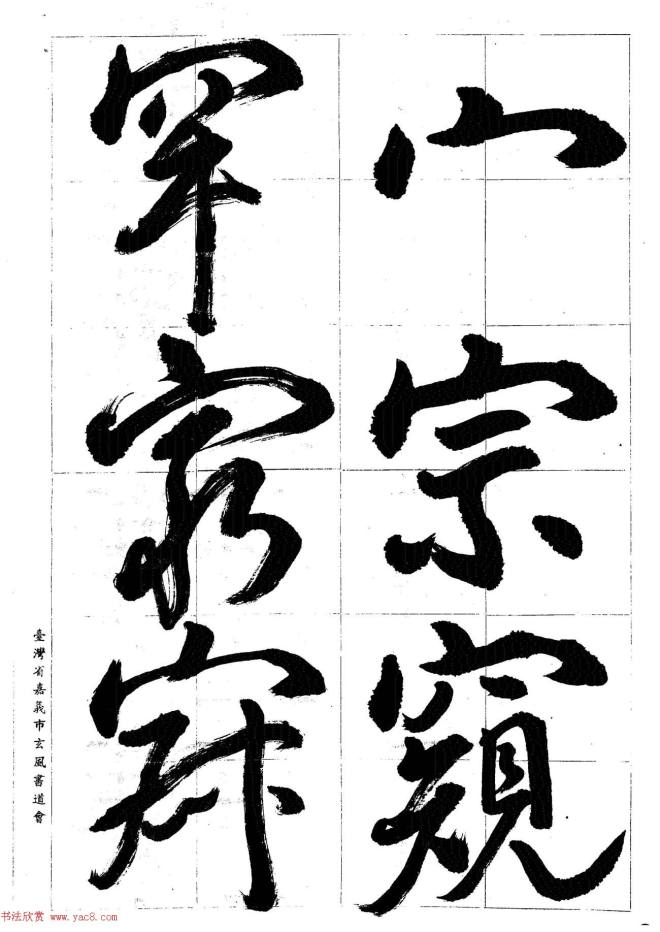 宀宗窺
罕家
臺灣省嘉義市玄風書道會
书法欣赏 www.yac8.com